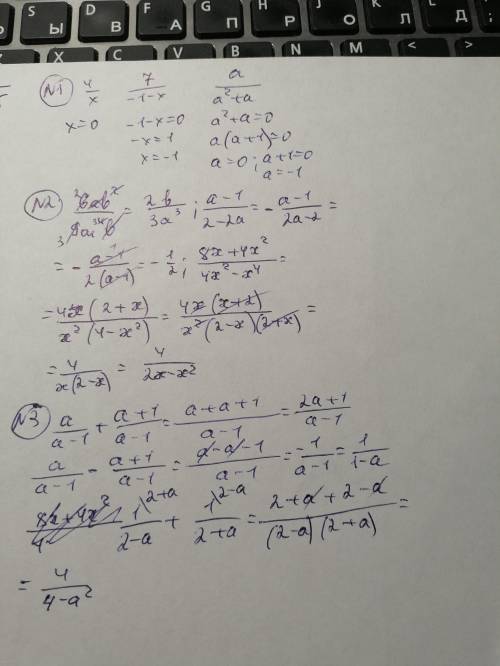 Ы В А П Р О Л Д
S D F G H J K L
Ч С М И Т Ь
X C V B N M < >
№1 4/x 7/(-1-x) a/(a²+a)
x=0 -1-x=0 a²+a=0
-x=1 a(a+1)=0
x=-1 a=0 ; a+1=0
a=-1
№2 = 2b/3a³ ; (a-1)/(2-2a) = -(a-1)/(2a-2) =
= -(a-1)/2(a-1) = -1/2 ; (8x+4x²)/(4x²-x⁴) =
= 4x(2+x)/x²(4-x²) = 4x(x+2)/x²(2-x)(2+x) =
= 4/x(2-x) = 4/(2x-x²)
№3 a/(a-1) + (a+1)/(a-1) = (a+a+1)/(a-1) = (2a+1)/(a-1)
a/(a-1) - (a+1)/(a-1) = (a-a-1)/(a-1) = -1/(a-1) = 1/(1-a)
1^(2+a)/(2-a) + 1^(2-a)/(2+a) = (2+a+2-a)/(2-a)(2+a) =
= 4/(4-a²)